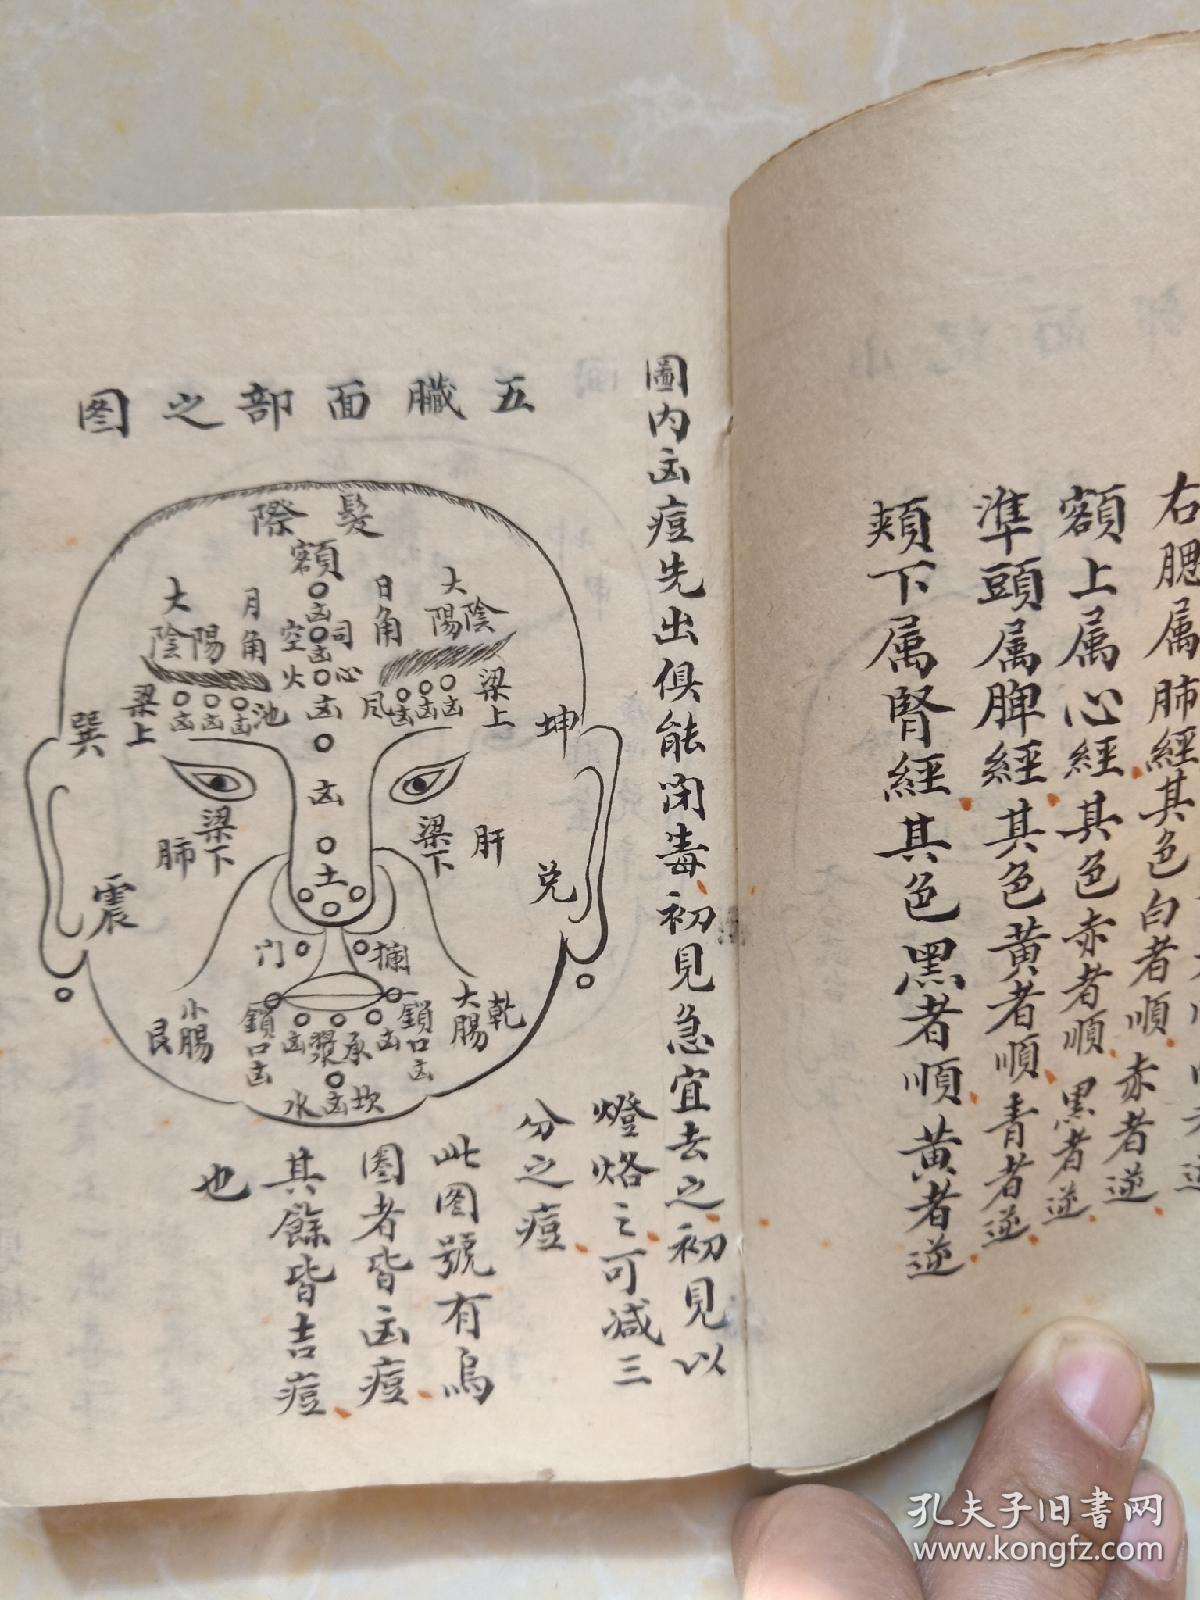 右腮属肺經其色白者順赤者逆
額上属心經其色赤者順黑者逆
準頭属脾經其色黄者順青者逆
頬下属腎經其色黑者順黄者逆
圖内凶痘先出俱能閉毒初見急宜去之初見以
燈烙之可减三
分之痘
此图號有烏
圏者皆凶痘
其餘皆吉痘
也
五臟面部之图
髮際
額
凶
日角
月角
太陽
陰
太陽
陰
司空
凶
心火
凶
梁上
梁上
風池
凶凶凶
凶凶凶
坤
巽
凶
梁下
梁下
肝
肺
兌
震
土
攔门
乾
大腸
小腸
艮
鎖口凶
鎖口凶
凶
承漿
凶
坎凶水
孔夫子旧书网
www.kongfz.com